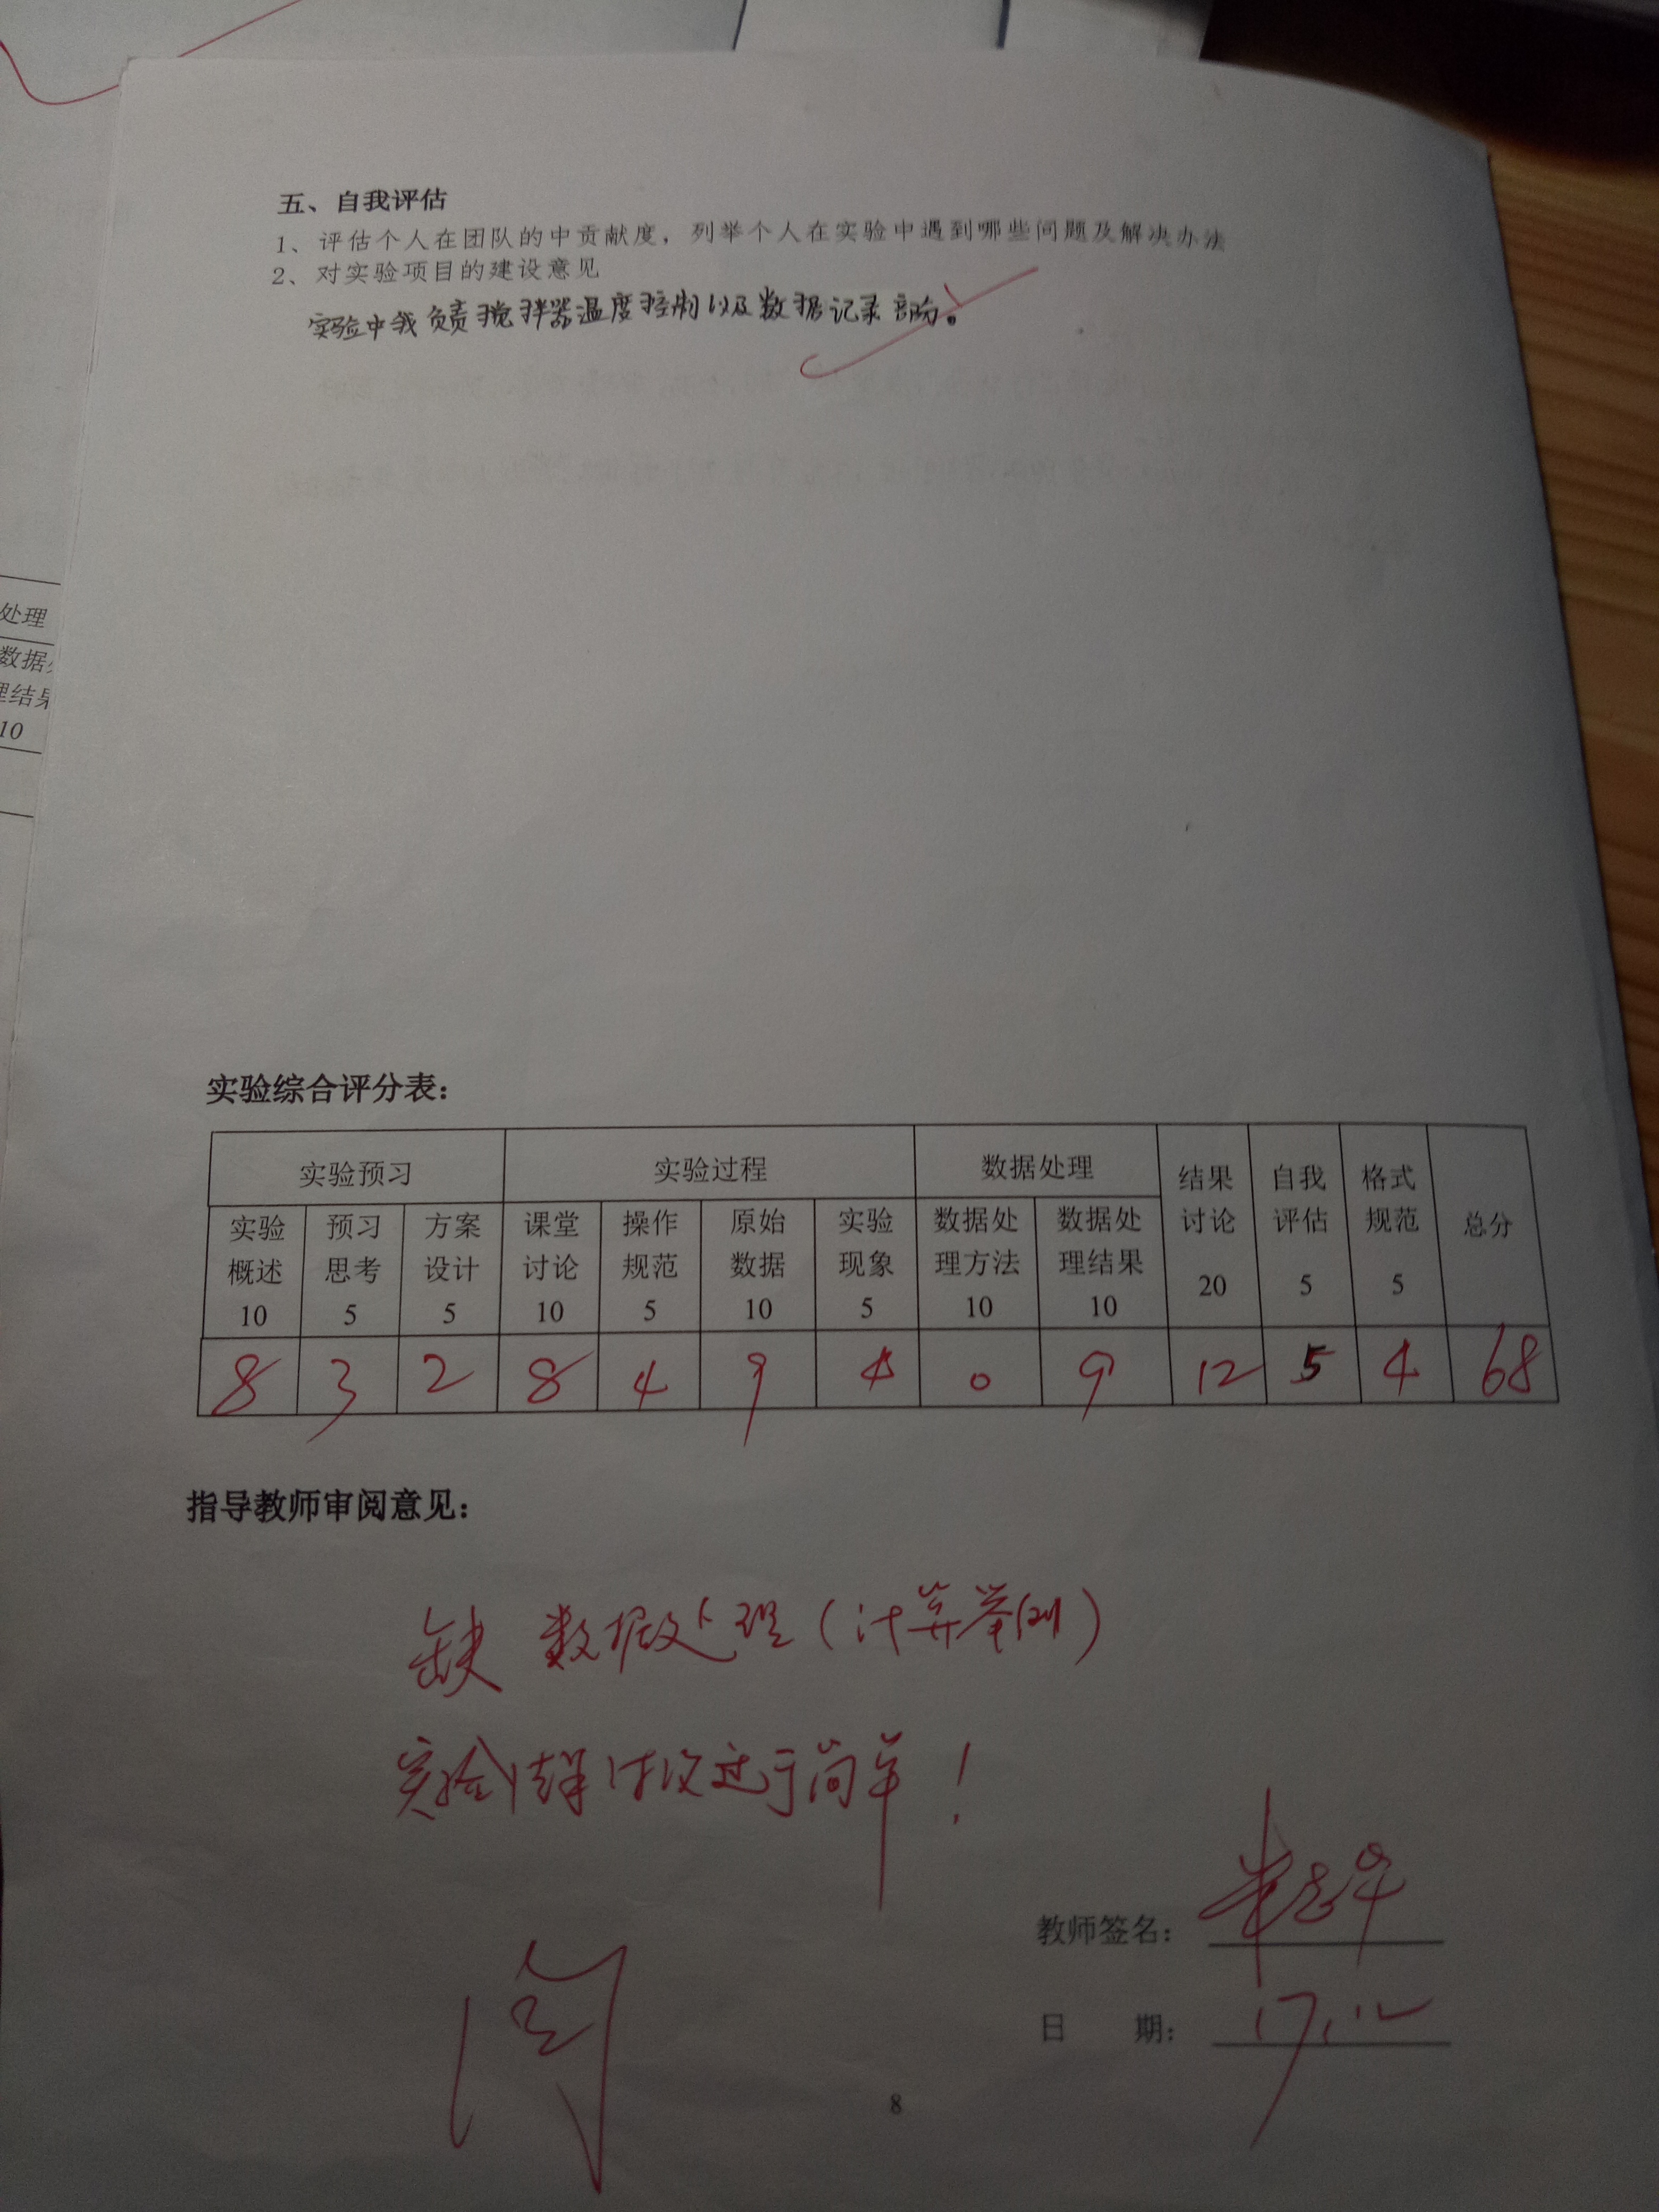 五、自我评估
1、评估个人在团队的中贡献度，列举个人在实验中遇到哪些问题及解决办法
2、对实验项目的建设意见
实验中我负责搅拌器温度控制以及数据记录部分。
处理
数据处
理结果
10
实验综合评分表：
实验预习 实验过程 数据处理 结果讨论 20 自我评估 5 格式规范 5 总分
实验概述 10 预习思考 5 方案设计 5 课堂讨论 10 操作规范 5 原始数据 10 实验现象 5 数据处理方法 10 数据处理结果 10
8 3 2 8 4 9 4 0 9 12 5 4 68
指导教师审阅意见：
缺 数据处理（计算举例）
实验结果讨论过于简单！
阅
教师签名：
日 期： 17.12
8